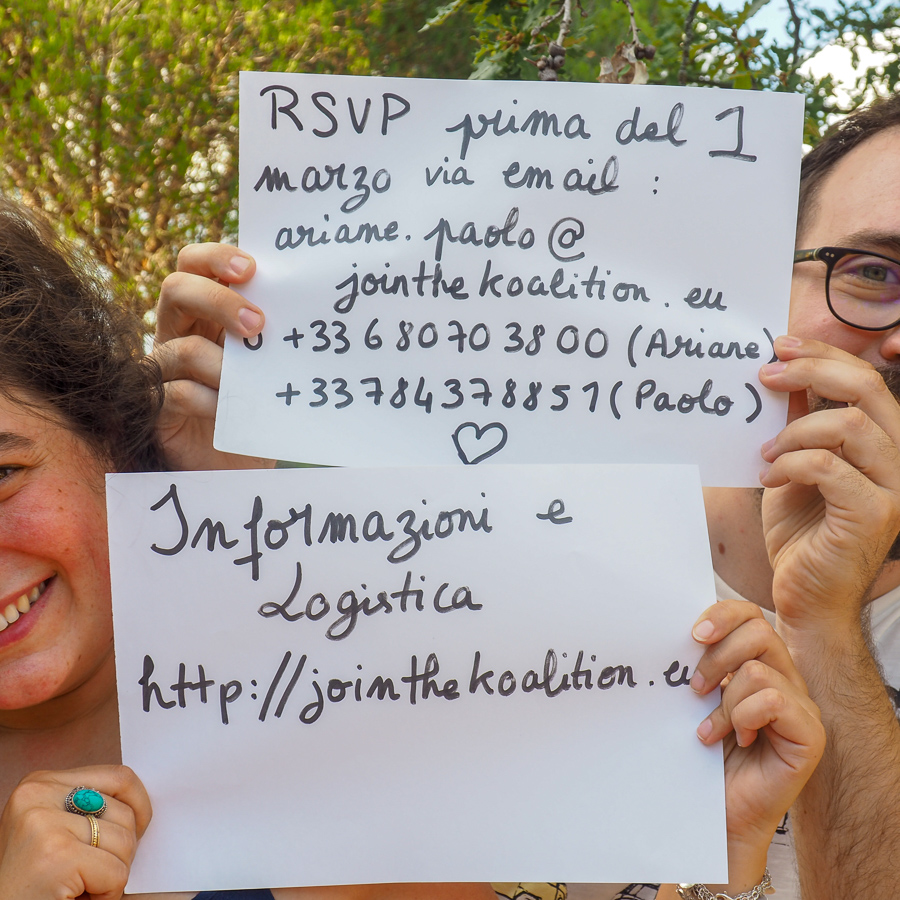 RSVP prima del 1
marzo via email :
ariane.paolo@
jointhekoalition.eu
o +33 6 80 70 38 00 (Ariane)
+33784378851 (Paolo)
♡
Informazioni e
Logistica
http://jointhekoalition.eu